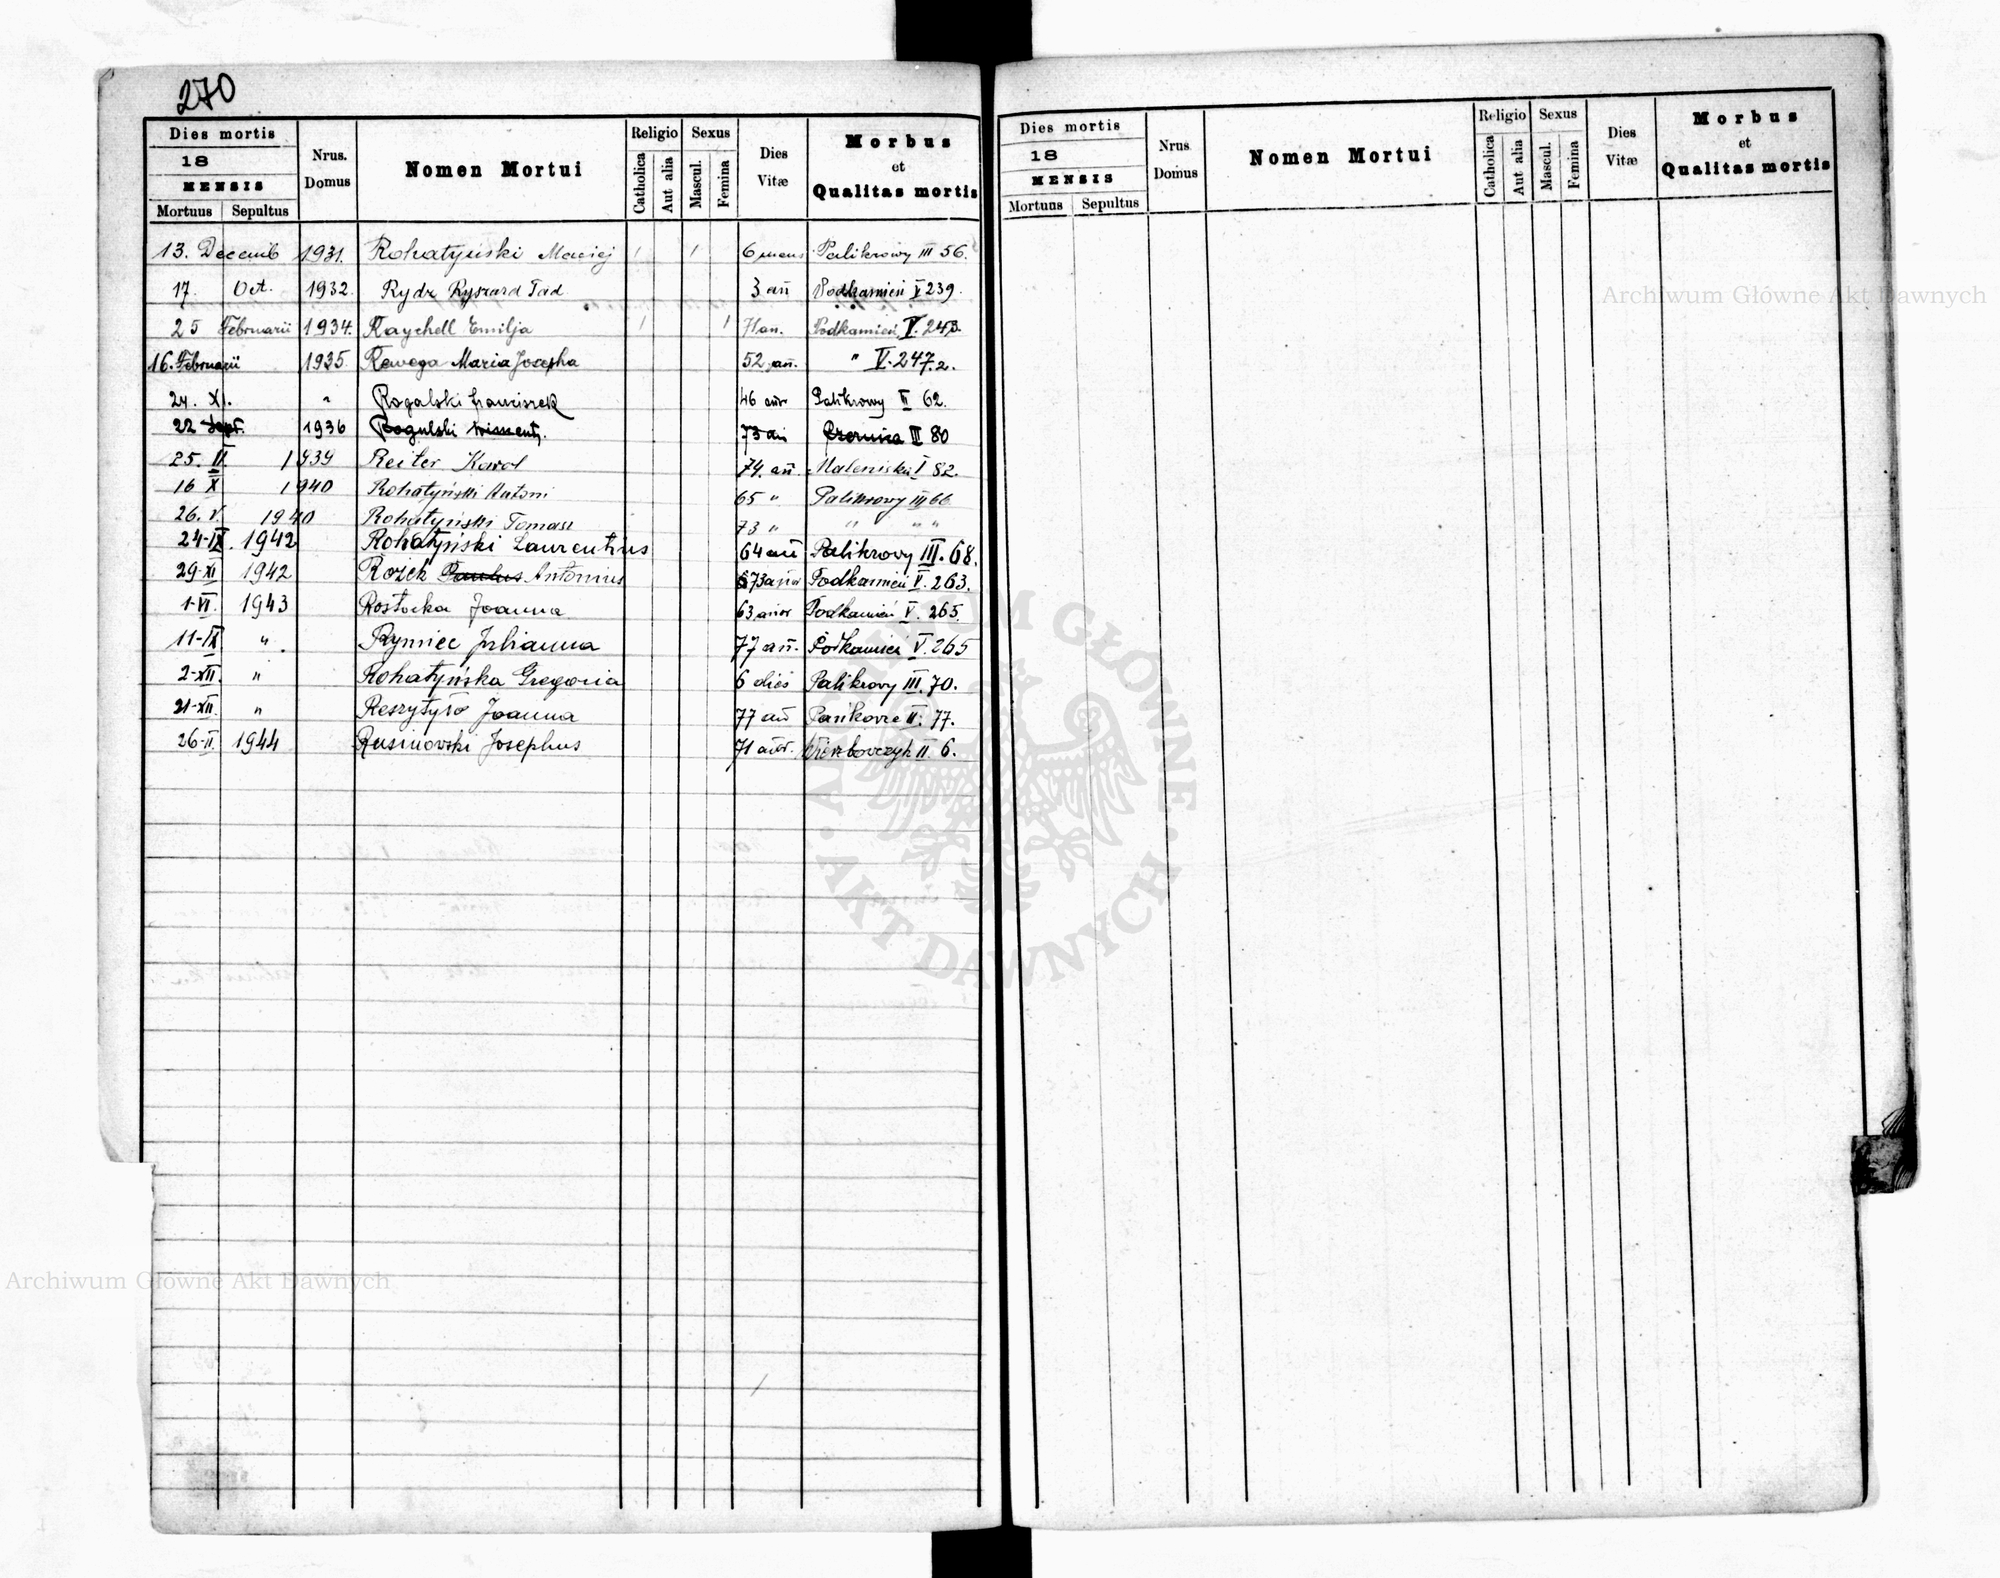 270
Dies mortis
18
MENSIS
Mortuus Sepultus
Nrus. Domus
Nomen Mortui
Religio
Catholica Aut alia
Sexus
Mascul. Femina
Dies Vitæ
Morbus
et
Qualitas mortis
13. Decemb 1931. Rohatyński Maciej 1 1 6 mens Palikrowy III 56.
17. Oct. 1932. Rydz Ryszard Tad 3 añ Podkamień V 239.
25 Februarii 1934. Raychell Emilja 1 1 71 an. Podkamień V. 243.
16. Februarii 1935. Rewega Maria Josepha 52 añ. " V. 247.2.
24. XI. " Rogalski Franciszek 46 Palikrowy II 62.
22 Sept. 1936 Rogulski 73 Czernica III 80
25. II. 1939 Reiter Karol 74. añ. Maleniska I 82.
16 X 1940 Rohatyński Antoni 65 " Palikrowy III 66
26. V. 1940 Rohatyński Tomasz 73 " " " "
24-IX. 1942 Rohatyński Laurentius 64 añ Palikrovy III. 68.
29-XI 1942 Rożek Paulus Antonius 73 Podkamień V. 263.
1-VI. 1943 Rostocka Joanna 63 Podkamień V. 265.
11-IX " . Rymiec Julianna 77 añ. Podkamień V. 265
2-XII. " Rohatyńska Gregoria 6 dies Palikrovy III. 70.
21-XII. " Reszytyło Joanna 77 añ Pańkowce II. 77.
26-II. 1944 Rusinovski Josephus 71 Wierzbovczyk II. 6.
Dies mortis
18
MENSIS
Mortuus Sepultus
Nrus. Domus
Nomen Mortui
Religio
Catholica Aut alia
Sexus
Mascul. Femina
Dies Vitæ
Morbus
et
Qualitas mortis
Archiwum Główne Akt Dawnych
Archiwum Główne Akt Dawnych
GŁÓWNE · AKT DAWNYCH ·